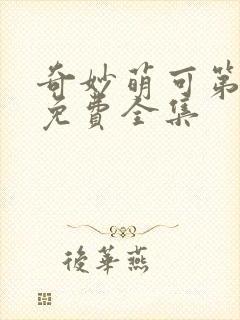 奇妙萌可第
免费全集
後華燕